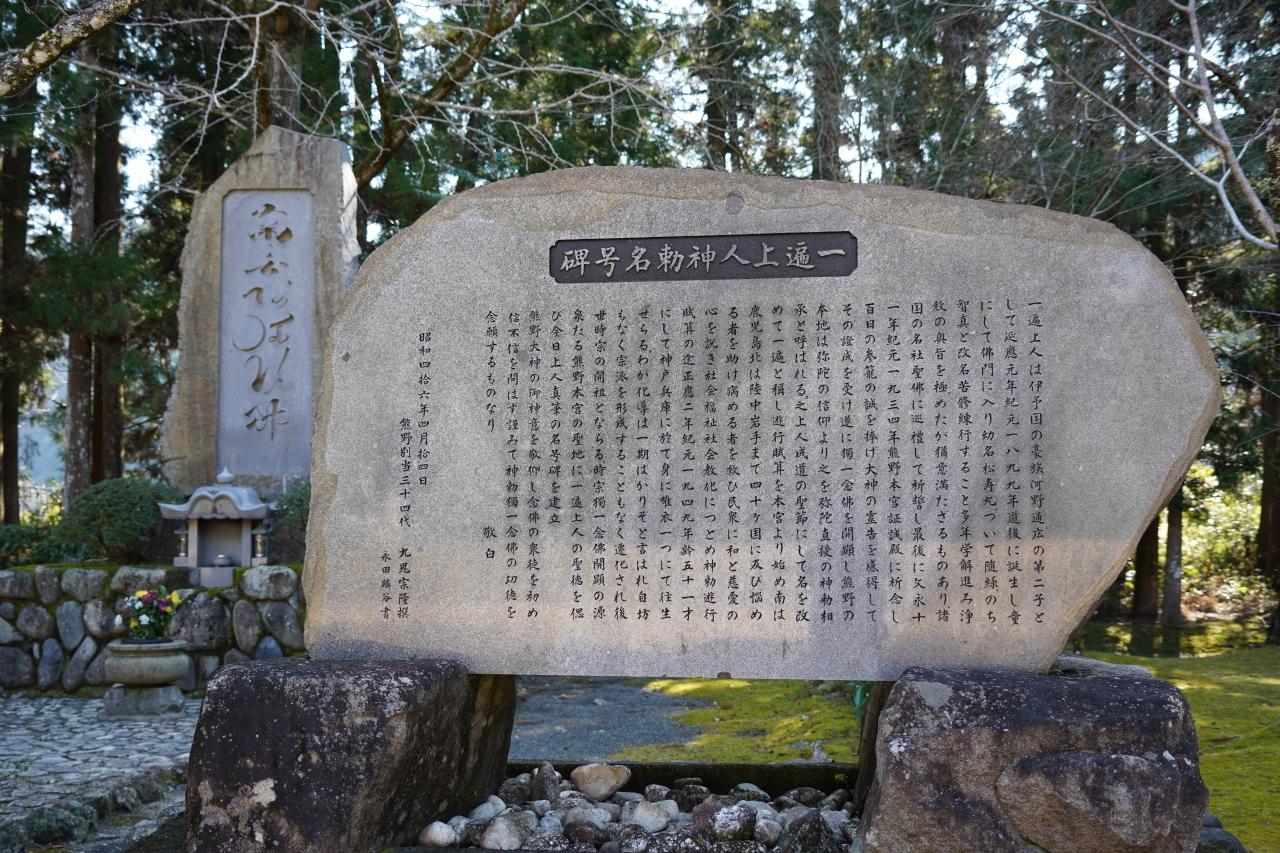 一遍上人神勅名号碑
一遍上人は伊予国の豪族河野通広の第二子と
して延應元年紀元一八九九年道後に誕生し童
にして佛門に入り幼名松寿丸ついで随縁のち
智真と改名苦修練行すること多年学解進み浄
教の奥旨を極めたが猶意満たざるものあり諸
国の名社聖佛に巡禮して祈誓し最後に文永十
一年紀元一九三四年熊野本宮証誠殿に祈念し
百日の参篭の誠を捧げ大神の霊告を感得して
その證成を受け遂に獨一念佛を開顕し熊野の
本地は弥陀の信仰より之を弥陀直授の神勅相
承と呼ばれる之上人成道の聖節にして名を改
めて一遍と稱し遊行賦算を本宮より始め南は
鹿児島北は陸中岩手まで四十ヶ国に及び悩め
る者を助け病める者を救ひ民衆に和と慈愛の
心を説き社会福祉社会教化につとめ神勅遊行
賦算の途正應二年紀元一九四九年齢五十一才
にして神戸兵庫に於て身に唯衣一つにて往生
せらるわが化導は一期ばかりぞと言はれ自坊
もなく宗派を形成することもなく遷化され後
世時宗の開祖とならる時宗獨一念佛開顕の源
泉たる熊野本宮の聖地に一遍上人の聖徳を偲
び今日上人真筆の名号碑を建立
熊野大神の御神意を敬仰し念佛の衆徒を初め
信不信を問はず謹みて神勅獨一念佛の功徳を
念願するものなり
敬白
昭和四拾六年四月拾四日
熊野別当三十四代
九鬼宗隆撰
永田鱗谷書
南无阿弥陀佛